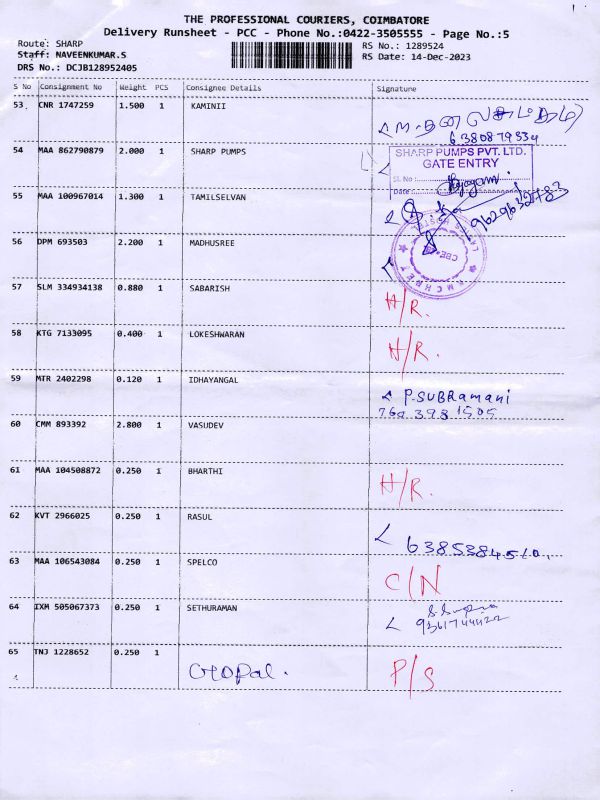 THE PROFESSIONAL COURIERS, COIMBATORE
Delivery Runsheet - PCC - Phone No.:0422-3505555 - Page No.:5
Route: SHARP
RS No.: 1289524
Staff: NAVEENKUMAR.S
RS Date: 14-Dec-2023
DRS No.: DCJB128952405
S No Consignment No Weight PCS Consignee Details Signature
53 CNR 1747259 1.500 1 KAMINII
6380879334
54 MAA 862790879 2.000 1 SHARP PUMPS
SHARP PUMPS PVT. LTD.
GATE ENTRY
Sl. No :
Date :
55 MAA 100967014 1.300 1 TAMILSELVAN
56 DPM 693503 2.200 1 MADHUSREE
LADIES HOSTEL
CBE
57 SLM 334934138 0.880 1 SABARISH H/R.
58 KTG 7133095 0.400 1 LOKESHWARAN H/R.
59 MTR 2402298 0.120 1 IDHAYANGAL P.SUBRamani
398 1505
60 CMM 893392 2.800 1 VASUDEV
61 MAA 104508872 0.250 1 BHARTHI H/R.
62 KVT 2966025 0.250 1 RASUL
6385384510.
63 MAA 106543084 0.250 1 SPELCO C/N
64 IXM 505067373 0.250 1 SETHURAMAN
9361744422
65 TNJ 1228652 0.250 1 GOpal. P/S